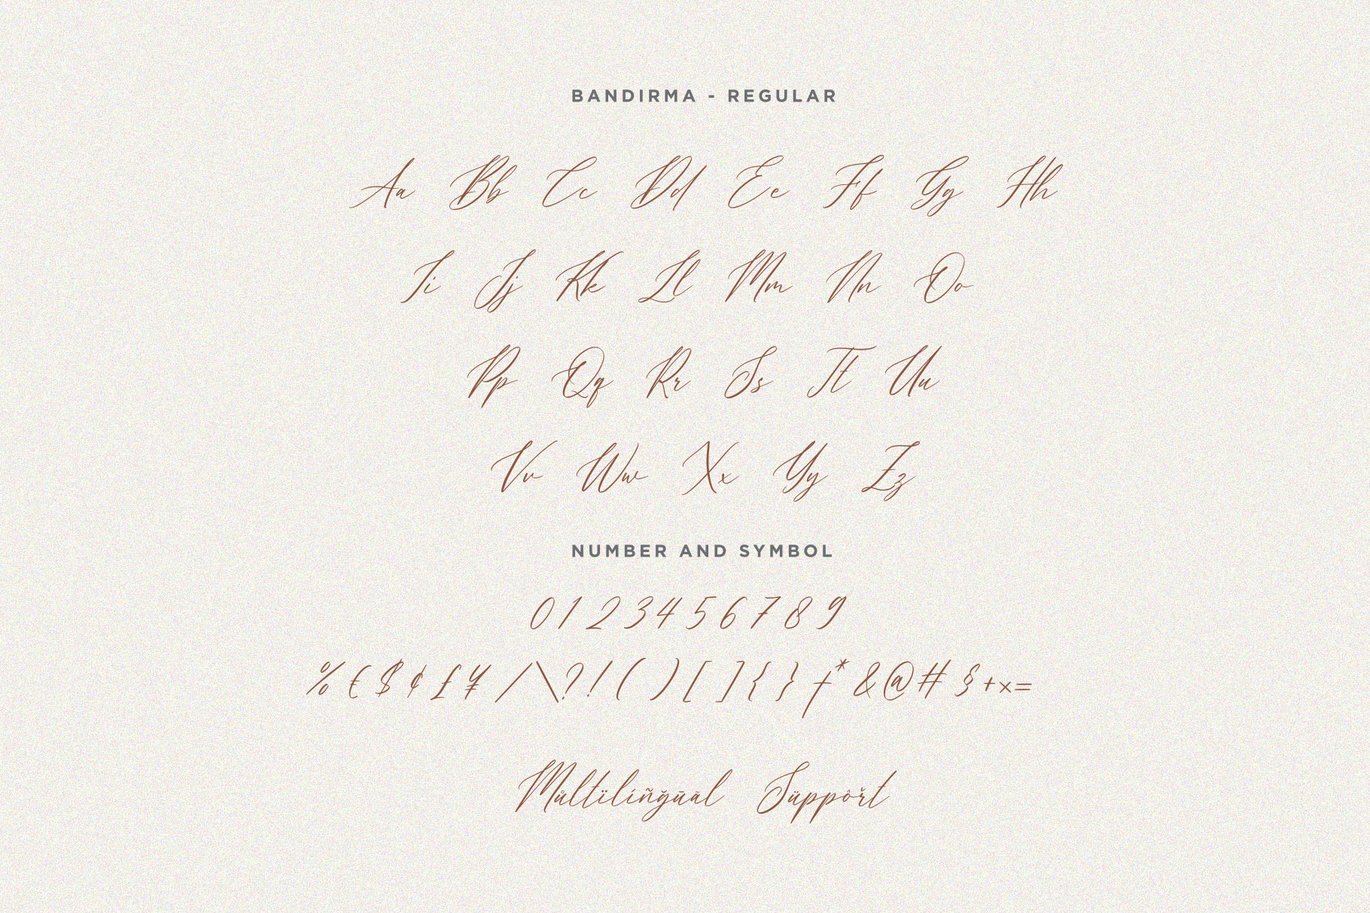 BANDIRMA - REGULAR
Aa Bb Cc Dd Ee Ff Gg Hh
Ii Jj Kk Ll Mm Nn Oo
Pp Qq Rr Ss Tt Uu
Vv Ww Xx Yy Zz
NUMBER AND SYMBOL
0 1 2 3 4 5 6 7 8 9
% € $ ¢ £ ¥ / \ ? ! ( ) [ ] { } † * & @ # § + × =
Můltïlíñğūāl Süppòřt